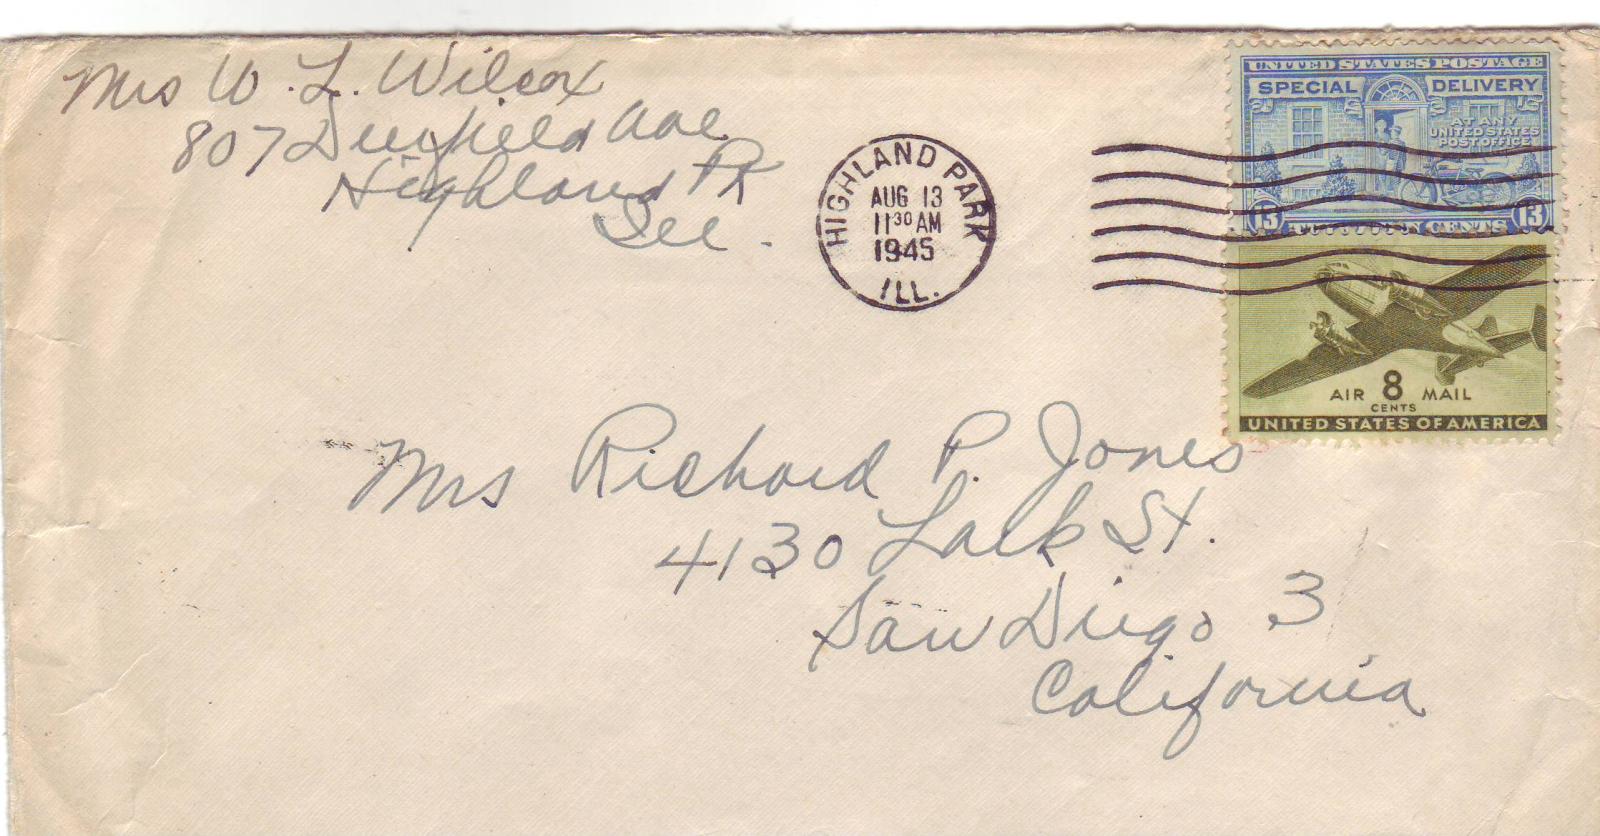 Mrs W. L. Wilcox
807 Deerfield Ave
Highland Pk
Ill.
HIGHLAND PARK
AUG 13
11 30 AM
1945
ILL.
UNITED STATES POSTAGE
SPECIAL DELIVERY
AT ANY
UNITED STATES
POST OFFICE
13 CENTS 13
AIR 8 MAIL
CENTS
UNITED STATES OF AMERICA
Mrs Richard P. Jones
4130 Lark St.
San Diego 3
California